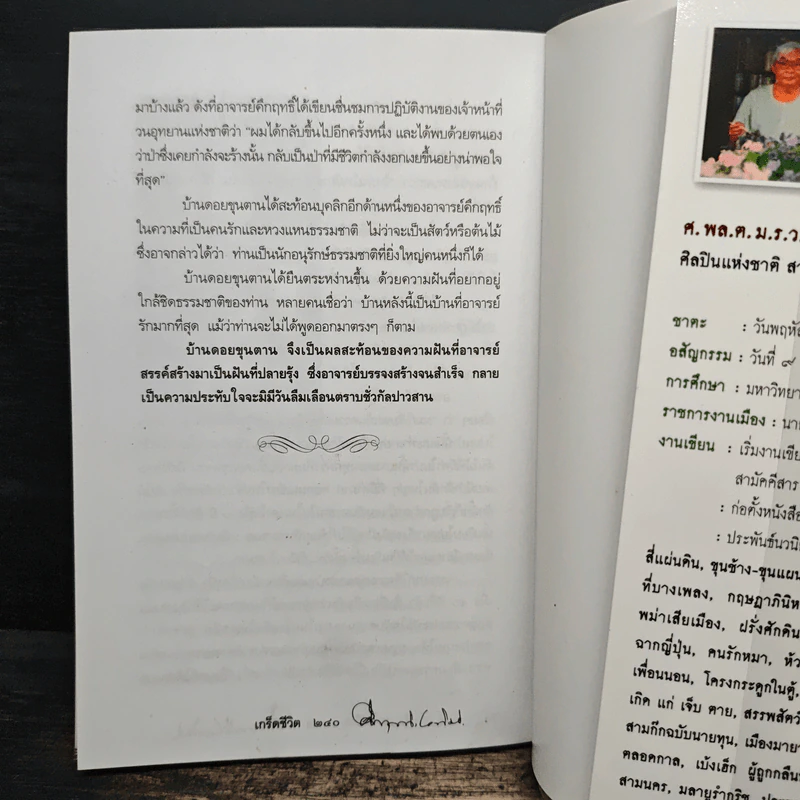 มาบ้างแล้ว ดังที่อาจารย์คึกฤทธิ์ได้เขียนชื่นชมการปฏิบัติงานของเจ้าหน้าที่
วนอุทยานแห่งชาติว่า "ผมได้กลับขึ้นไปอีกครั้งหนึ่ง และได้พบด้วยตนเอง
ว่าป่าซึ่งเคยกำลังจะร้างนั้น กลับเป็นป่าที่มีชีวิตกำลังงอกเงยขึ้นอย่างน่าพอใจ
ที่สุด"
บ้านดอยขุนตานได้สะท้อนบุคลิกอีกด้านหนึ่งของอาจารย์คึกฤทธิ์
ในความที่เป็นคนรักและหวงแหนธรรมชาติ ไม่ว่าจะเป็นสัตว์หรือต้นไม้
ซึ่งอาจกล่าวได้ว่า ท่านเป็นนักอนุรักษ์ธรรมชาติที่ยิ่งใหญ่คนหนึ่งก็ได้
บ้านดอยขุนตานได้ยืนตระหง่านขึ้น ด้วยความฝันที่อยากอยู่
ใกล้ชิดธรรมชาติของท่าน หลายคนเชื่อว่า บ้านหลังนี้เป็นบ้านที่อาจารย์
รักมากที่สุด แม้ว่าท่านจะไม่ได้พูดออกมาตรงๆ ก็ตาม
บ้านดอยขุนตาน จึงเป็นผลสะท้อนของความฝันที่อาจารย์
สรรค์สร้างมาเป็นฝันที่ปลายรุ้ง ซึ่งอาจารย์บรรจงสร้างจนสำเร็จ กลาย
เป็นความประทับใจจะมิมีวันลืมเลือนตราบชั่วกัลปาวสาน
เกร็ดชีวิต ๒๔๐
ศ.พล.ต.ม.ร.ว.
ศิลปินแห่งชาติ
ชาตะ : วันพฤหัส
อสัญกรรม : วันที่ ๙
การศึกษา : มหาวิทยา
ราชการงานเมือง : นา
งานเขียน : เริ่มงานเขีย
สามัคคีสาร
: ก่อตั้งหนังสือ
: ประพันธ์นวนิ
สี่แผ่นดิน, ขุนช้าง-ขุนแผน
ที่บางเพลง, กฤษฎาภินิห
พม่าเสียเมือง, ฝรั่งศักดิน
ฉากญี่ปุ่น, คนรักหมา, ห้ว
เพื่อนนอน, โครงกระดูกในตู้,
เกิด แก่ เจ็บ ตาย, สรรพสัตว์
สามก๊กฉบับนายทุน, เมืองมายา
ตลอดกาล, เบ้งเฮ็ก ผู้ถูกกลืน
สามนคร, มลายูรำกริช,